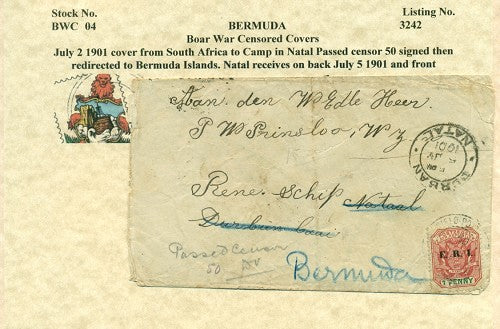 Stock No.
BWC 04
BERMUDA
Listing No.
3242
Boar War Censored Covers
July 2 1901 cover from South Africa to Camp in Natal Passed censor 50 signed then
redirected to Bermuda Islands. Natal receives on back July 5 1901 and front
Aan den WEdle Heer.
P W Prinsloo, Wz
Rene. Schip Nataal
Durban baai
Passed Censor
50
Bermuda
DURBAN
NATAL
JY
1901
E. R. I.
1 PENNY